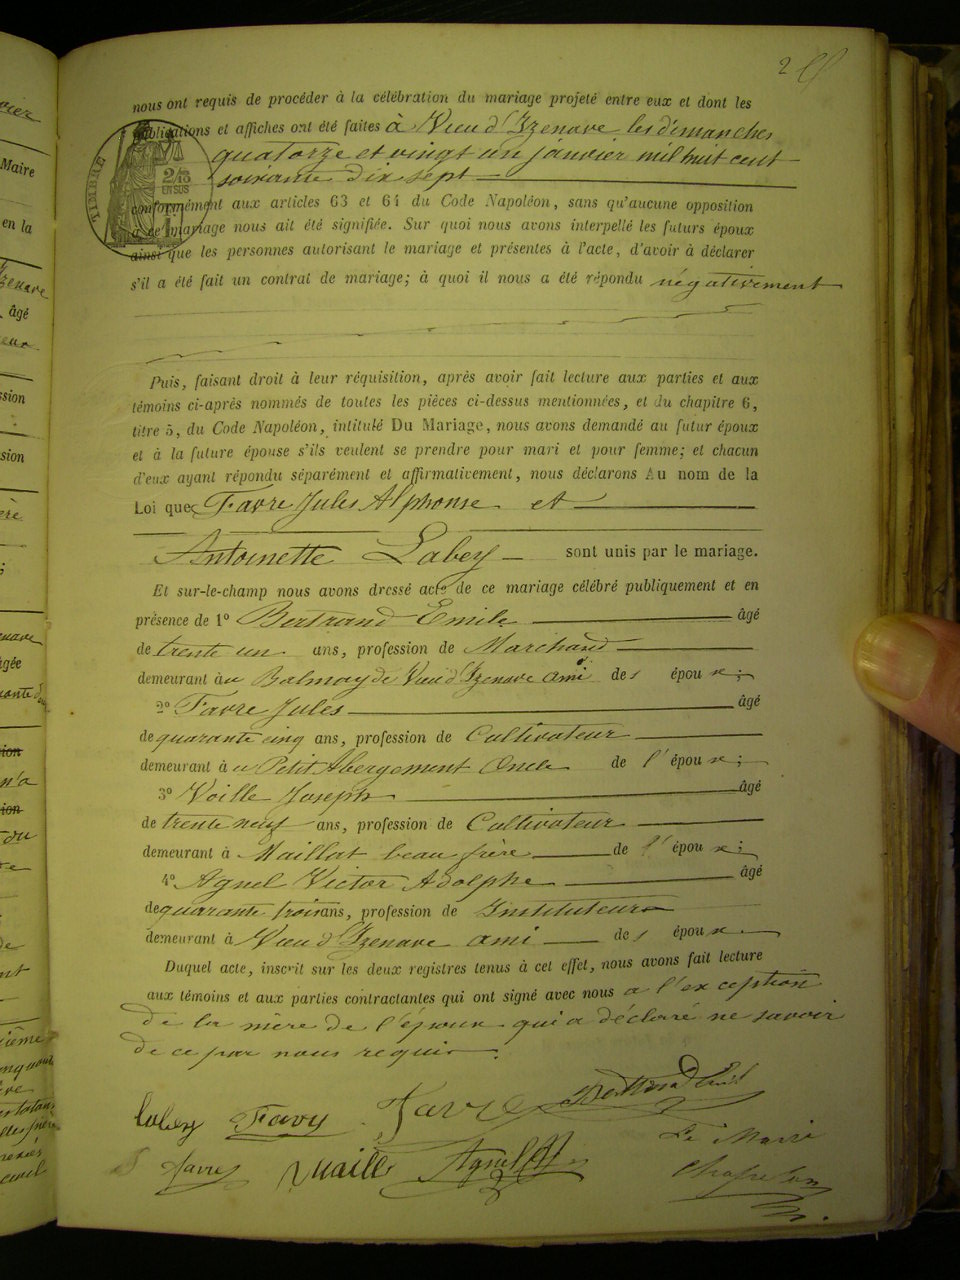 2
nous ont requis de procéder à la célébration du mariage projeté entre eux et dont les
publications et affiches ont été faites à Vieu d'Izenave les dimanches
quatorze et vingt un janvier mil huit cent
soixante dix sept
TIMBRE
2/10
EN SUS
conformément aux articles 63 et 64 du Code Napoléon, sans qu'aucune opposition
à ce mariage nous ait été signifiée. Sur quoi nous avons interpellé les futurs époux
ainsi que les personnes autorisant le mariage et présentes à l'acte, d'avoir à déclarer
s'il a été fait un contrat de mariage; à quoi il nous a été répondu négativement
Puis, faisant droit à leur réquisition, après avoir fait lecture aux parties et aux
témoins ci-après nommés de toutes les pièces ci-dessus mentionnées, et du chapitre 6,
titre 5, du Code Napoléon, intitulé Du Mariage, nous avons demandé au futur époux
et à la future épouse s'ils veulent se prendre pour mari et pour femme; et chacun
d'eux ayant répondu séparément et affirmativement, nous déclarons Au nom de la
Loi que Favre Jules Alphonse et
Antoinette Labey sont unis par le mariage.
Et sur-le-champ nous avons dressé acte de ce mariage célébré publiquement et en
présence de 1º Bertrand Emile âgé
de trente un ans, profession de Marchand
demeurant à Balmay de Vieu d'Izenave ami des époux;
2º Favre Jules âgé
de quarante cinq ans, profession de Cultivateur
demeurant à u Petit Abergement Oncle de l'époux;
3º Voille Joseph âgé
de trente neuf ans, profession de Cultivateur
demeurant à Maillat beau frère de l'époux;
4º Agnel Victor Adolphe âgé
de quarante trois ans, profession de Instituteur
demeurant à Vieu d'Izenave ami des époux
Duquel acte, inscrit sur les deux registres tenus à cet effet, nous avons fait lecture
aux témoins et aux parties contractantes qui ont signé avec nous a l'exception
de la mère de l'époux qui a déclaré ne savoir
de ce par nous requis.
labey Favre Favre Bertrand Emile
Le Maire
Favre Vuaille Agnel